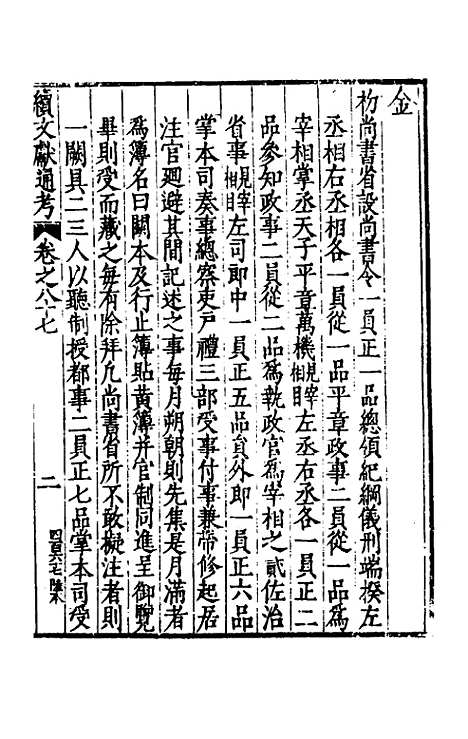 金
初尚書省設尚書令一員正一品總領紀綱儀刑端揆左
丞相右丞相各一員從一品平章政事二員從一品爲
宰相掌丞天子平章萬機見宰相左丞右丞各一員正二
品參知政事二員從二品爲執政官爲宰相之貳佐治
省事見宰相左司郎中一員正五品負外郎一員正六品
掌本司奏事總察吏戸禮三部受事付事兼帶修起居
注官廻避其間記述之事每月朔朝則先集是月滿者
爲簿名曰闕本及行止簿貼黃簿并官制同進呈御覽
畢則受而藏之每有除拜凡尚書省所不敢擬注者則
一闕具二三人以聽制授都事二員正七品掌本司受
續文獻通考 卷之八十七 二